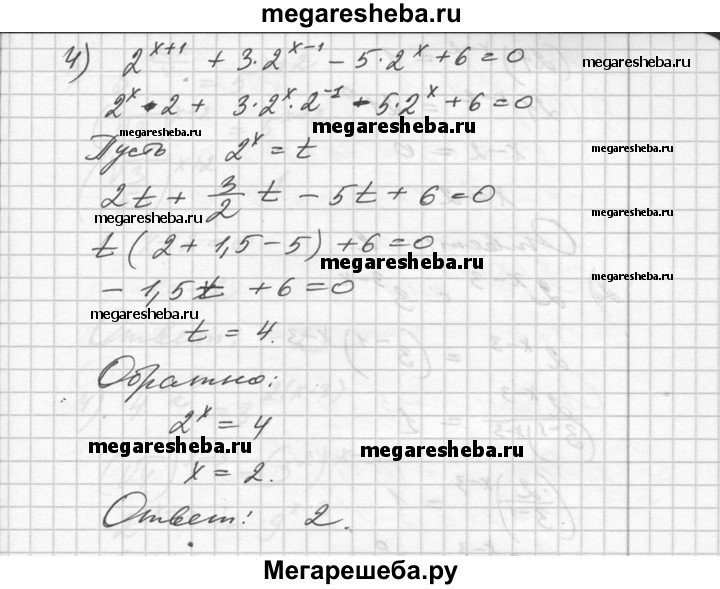 megaresheba.ru
4) 2^(x+1) + 3·2^(x-1) - 5·2^x + 6 = 0
megaresheba.ru
2^x·2 + 3·2^x·2^(-1) - 5·2^x + 6 = 0
megaresheba.ru megaresheba.ru
Пусть 2^x = t
2t + 3/2 t - 5t + 6 = 0
megaresheba.ru
t(2 + 1,5 - 5) + 6 = 0
megaresheba.ru
- 1,5t + 6 = 0
megaresheba.ru
t = 4.
Обратно:
2^x = 4
megaresheba.ru megaresheba.ru
x = 2.
Ответ: 2.
Мегарешеба.ру